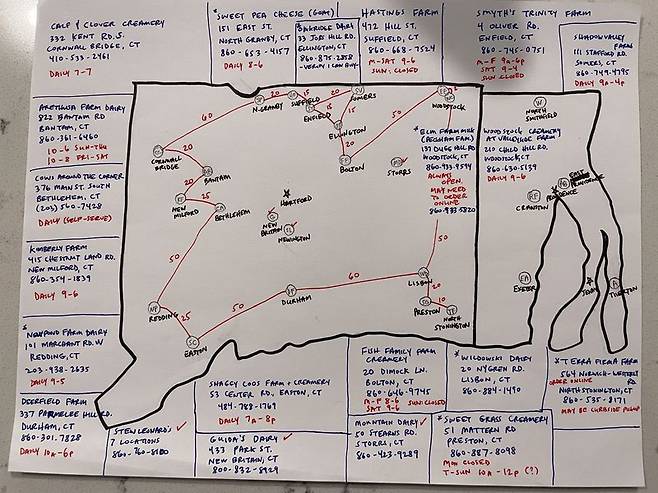 CALF & CLOVER CREAMERY
332 KENT RD. S.
CORNWALL BRIDGE, CT
410-533-2461
DAILY 7-7
*SWEET PEA CHEESE (GOAT)
151 EAST ST.
NORTH GRANBY, CT
860-653-4157
DAILY 8-6
*OAKRIDGE DAIRY
33 JOBS HILL RD.
ELLINGTON, CT
860-875-2858
-VERIFY I CAN BUY-
HASTINGS FARM
472 HILL ST.
SUFFIELD, CT
860-668-7524
M-SAT 9-6
SUN: CLOSED
SMYTH'S TRINITY FARM
4 OLIVER RD.
ENFIELD, CT
860-745-0751
M-F 9a-6p
SAT 9-4
SUN CLOSED
SHADOW VALLEY
FARM
111 STAFFORD RD.
SOMERS, CT
860-749-4795
DAILY 9a-4p
ARETHUSA FARM DAIRY
822 BANTAM RD
BANTAM, CT
860-361-6460
10-6 SUN-THU
10-8 FRI-SAT
COWS AROUND THE CORNER
376 MAIN ST. SOUTH
BETHLEHEM, CT
(203) 560-7428
DAILY (SELF-SERVE)
KIMBERLY FARM
415 CHESTNUT LAND RD.
NEW MILFORD, CT
860-354-1839
DAILY 9-6
*
NEWPOND FARM DAIRY
101 MARCHANT RD. W
REDDING, CT
203-938-2635
DAILY 9-5
DEERFIELD FARM
337 PARMELEE HILL RD.
DURHAM, CT
860-301-7828
DAILY 10A-6P
60
20
15
15
20
50
N. GRANBY
SUFFIELD
ENFIELD
SOMERS
ELLINGTON
BOLTON
WOODSTOCK
CORNWALL BRIDGE
20
BANTAM
25
NEW
MILFORD
BETHLEHEM
HARTFORD
NEW
BRITAIN
NEWINGTON
STORRS
50
REDDING
25
EASTON
50
DURHAM
60
LISBON
20
10
PRESTON
NORTH
STONINGTON
50
*ELM FARM MILK
(PEEKHAM FAM.)
WOODSTOCK, CT
860-933-9594
ALWAYS
OPEN,
MAY NEED
TO ORDER
ONLINE
860-933-5820
WOODSTOCK CREAMERY
AT VALLEYSIDE FARM
210 CHILD HILL RD.
WOODSTOCK CT
860-630-5139
DAILY 9-6
NORTH
SMITHFIELD
EAST
PROVIDENCE
PROVIDENCE
CRANSTON
EXETER
TIVERTON
STEW LEONARD'S
7 LOCATIONS
860-760-8180
SHAGGY COOS FARM + CREAMERY
53 CENTER RD., EASTON, CT
484-788-1769
DAILY 7A-8P
GUIDA'S DAIRY
433 PARK ST.
NEW BRITAIN, CT
800-832-8929
FISH FAMILY FARM
CREAMERY
20 DIMOCK LN.
BOLTON, CT
860-646-9745
M-F 8-6 SUN: CLOSED
SAT 9-6
MOUNTAIN DAIRY
50 STEARNS RD.
STORRS, CT
860-423-9289
*WILDOWSKI DAIRY
20 NYGREN RD.
LISBON, CT
860-884-1490
*SWEET GRASS CREAMERY
51 MATTERN RD
PRESTON, CT
860-887-8098
MON CLOSED
T-SUN 10A-12P (?)
*TERRA FIRMA FARM
ORDER ONLINE
564 NORWICH-WESTERLY
RD.
NORTH STONINGTON, CT
860-535-8171
MAY BE CURBSIDE PICKUP